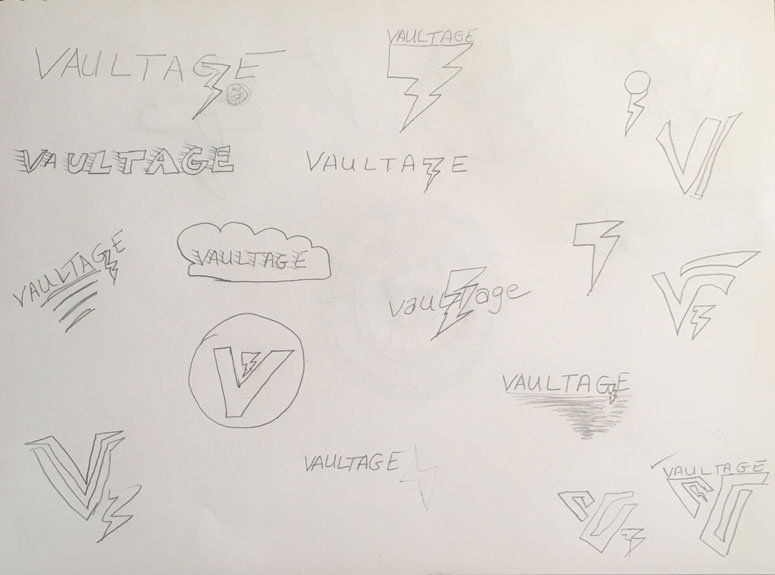 VAULTAGE
VAULTAGE
VAULTAGE
VAULTAGE
VAULTAGE
VAULTAGE
vaultage
V
VAULTAGE
V
VAULTAGE
VAULTAGE